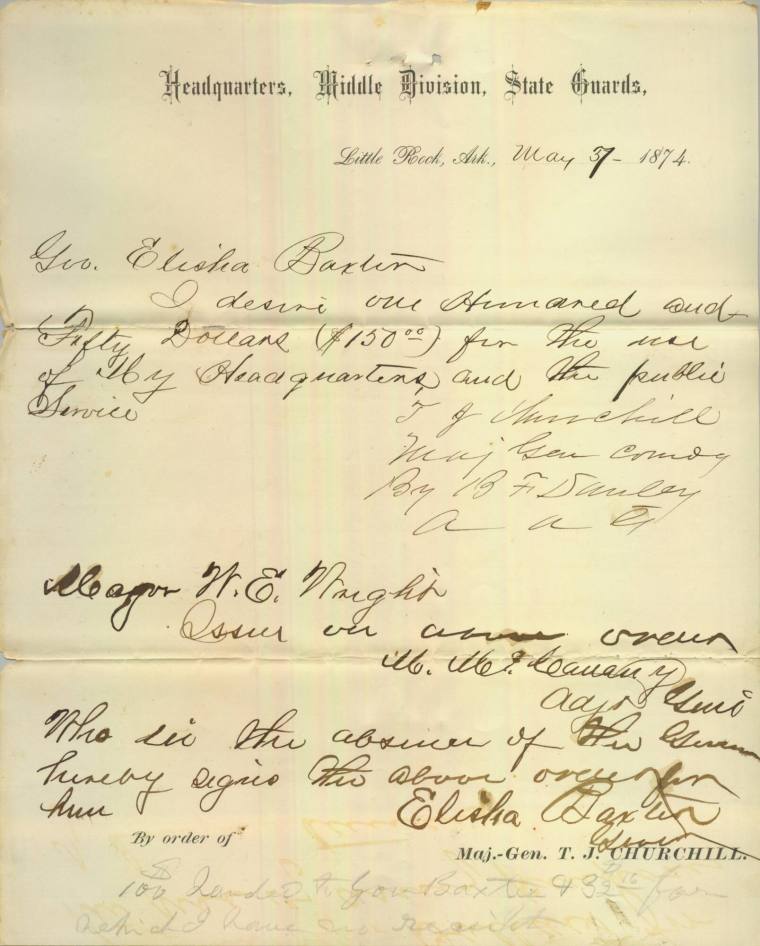 Headquarters, Middle Division, State Guards,
Little Rock, Ark., May 1874.
Gov. Elisha Baxter
I desire one Hundred and
Fifty Dollars ($150 00) for the use
of My Headquarters, and the public
Service
T J Churchill
Maj Gen Comdg
By B F Danley
A A G
Major W. E. Wright
Issue on above order
M. McCanany
Adjt Genl
Who in the absence of the Governor
hereby signs the above order for
him
Elisha Baxter
Governor
By order of
Maj.-Gen. T. J. CHURCHILL.
$
100 handed to Gov Baxter & 3 for
which I have no receipt